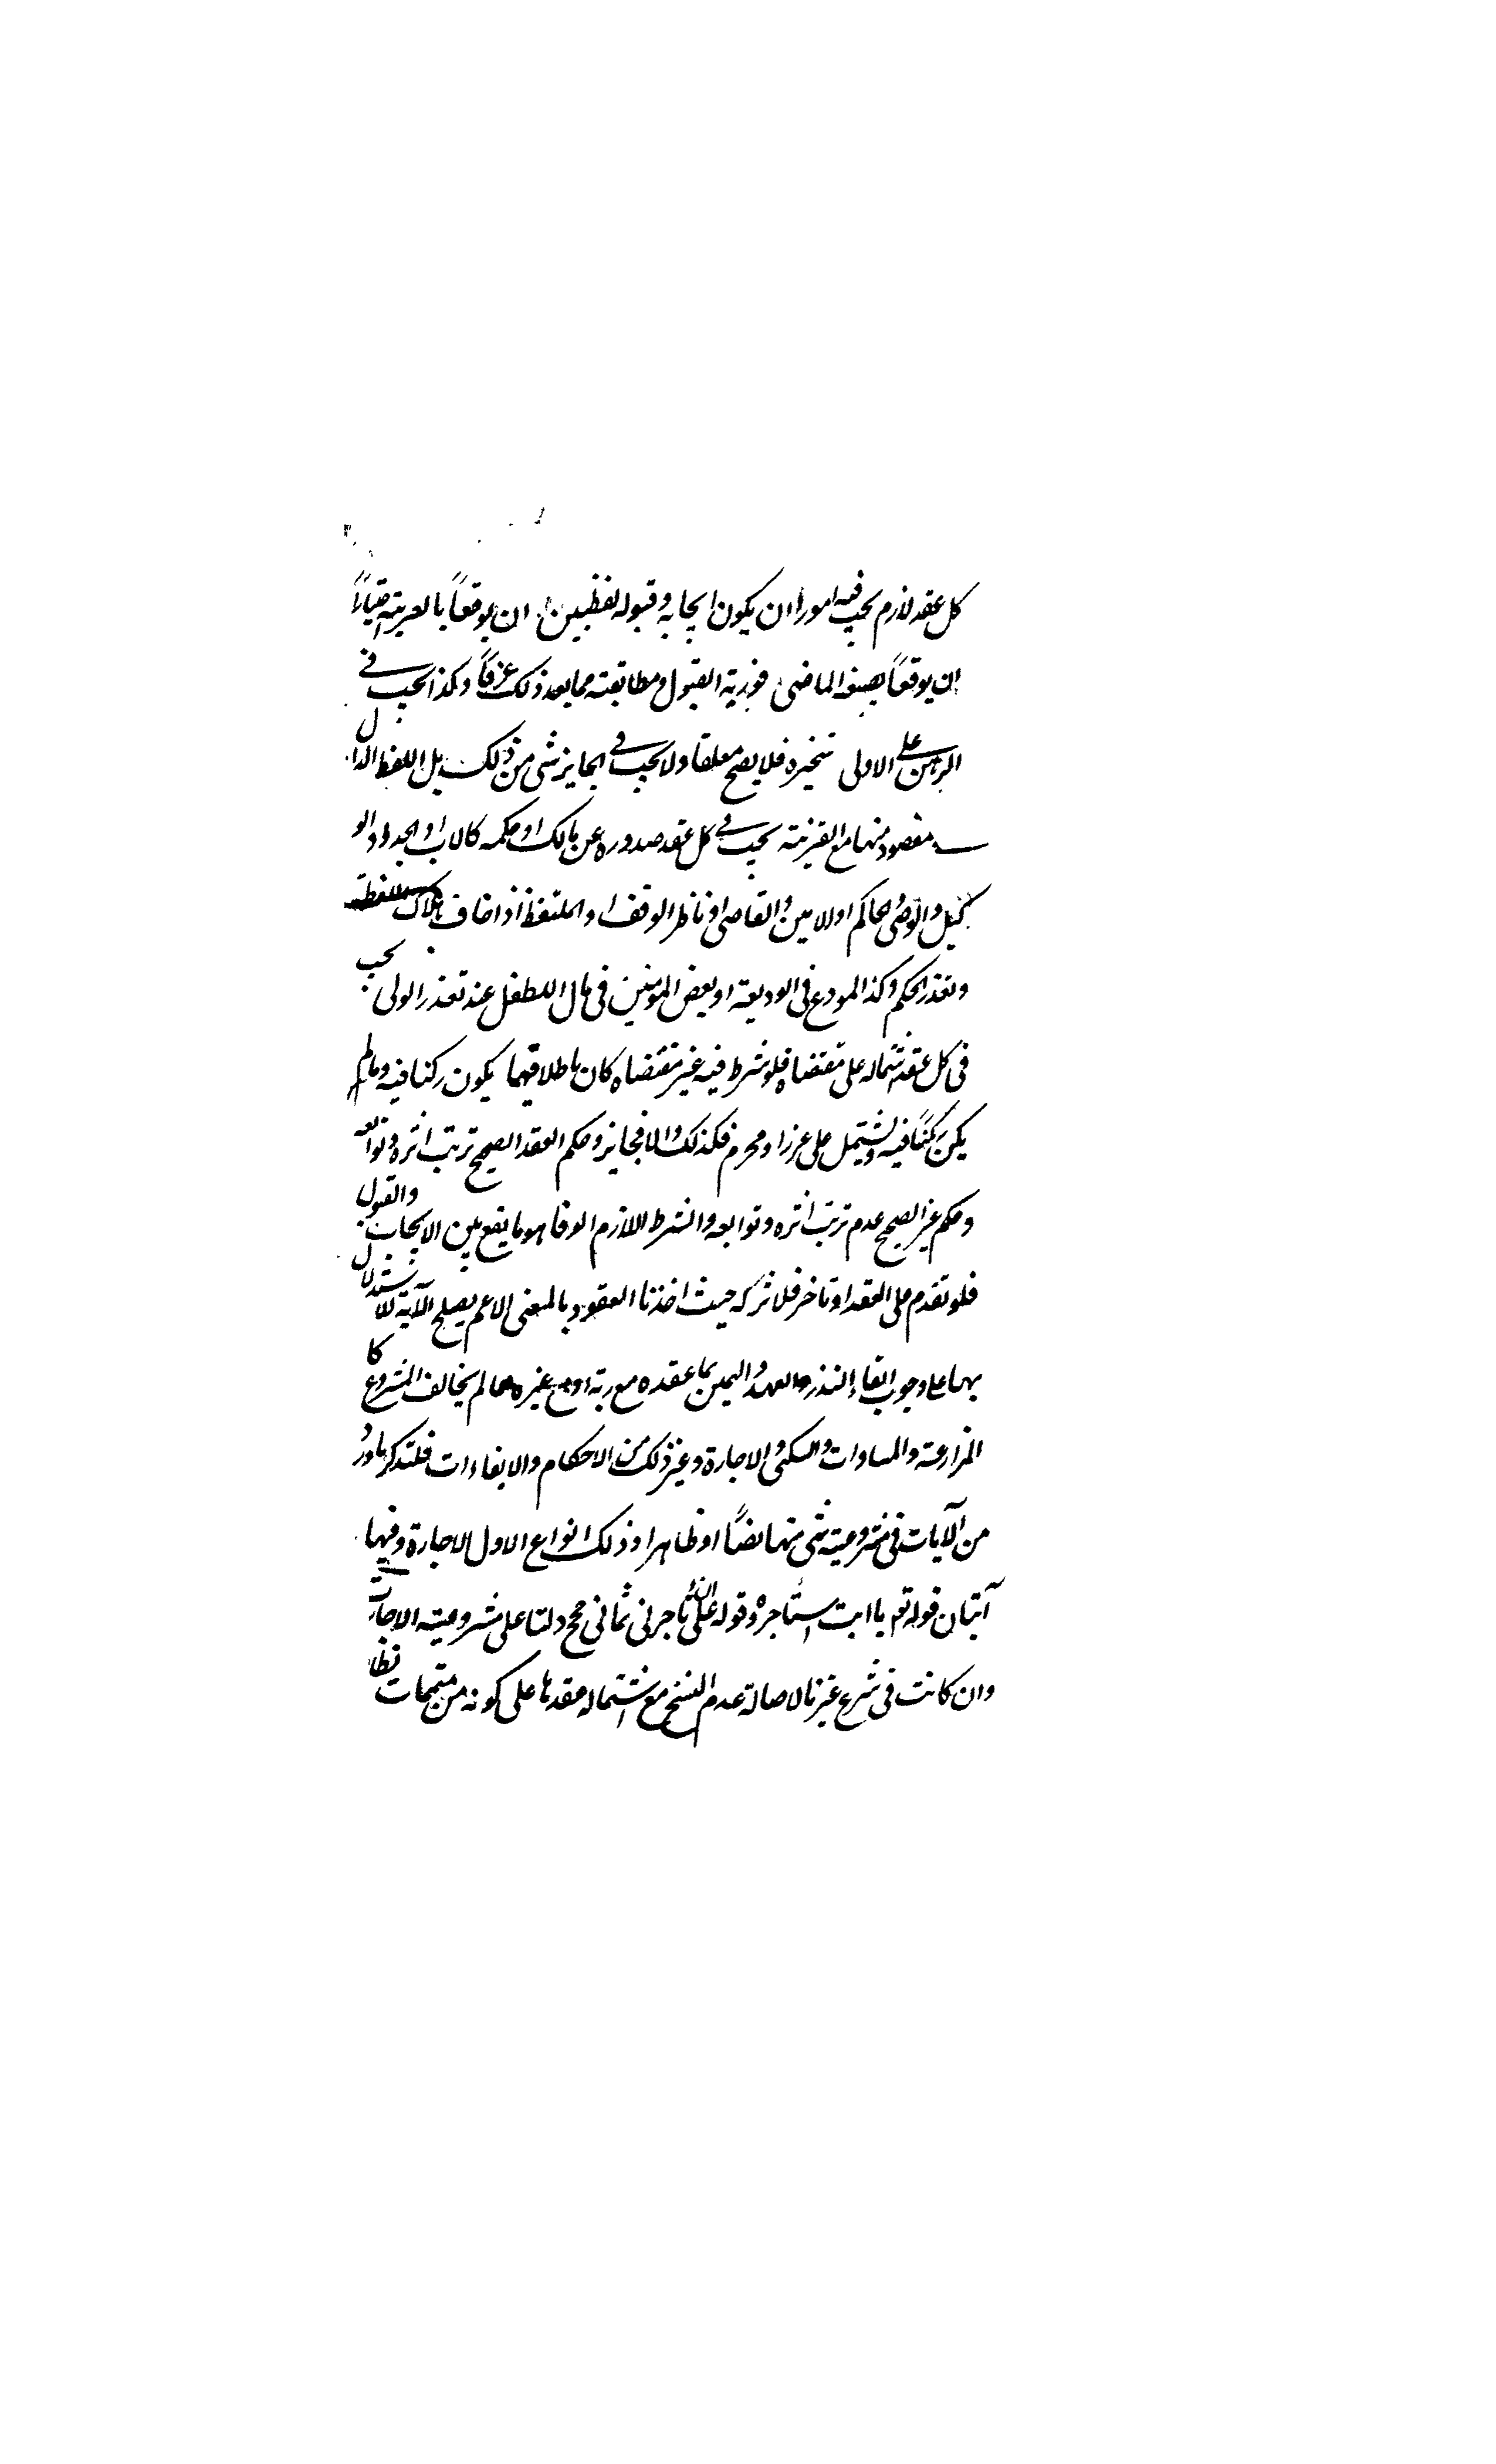 كل عقد لازم يجب فيه امور ان يكون ايجابه و قبوله لفظيين ان يوقعاً بالعربية اختياراً
ان يوقعاً بصيغه الماضى فورية القبول و مطابقته مما يعد ذلك عرفاً وكذا يجب فى
الرهن على الاولى تنجيزه فلا يصح معلقا ولا يجب فى الجايز شى من ذلك بل اللفظ الدال
مقصود منها مع القرينته يجب فى كل عقد صدوره عن مالك او حكمه كالاب او الجد او الو
كيل والوصى والحاكم او الامين والقاصى او ناظر الوقف او الملتقط اذا خاف هلاك اللقطة
وتعذر الحكم وكذا المودع فى الوديعة او بعض المؤمنين فى مال الطفل عند تعذر الولى يجب
فى كل عقد اشتماله على مقتضاه فلو شرط فيه غير مقتضاه كان باطلا فيهما يكون ركنا فيه ومالم
يكن ركنًا فيه ويشتمل على غرر او محرم فكذلك والا فجايز وحكم العقد الصحيح ترتب اثره وتوابعه
وحكم غير الصحيح عدم ترتب اثره وتوابعه والشرط اللازم الوفا هو ما يقع بين الايجاب والقبول
فلو تقدم على العقد او تاخر فلا اثر له حيث اخذنا العقود بالمعنى الاعم يصلح الآية للاستدلال
بها على وجوب ايفاء النذر والعهد واليمين بما عقده مع ربه او مع غيره مما لم يخالف المشروع كا
المزارعة والمساوات والسكنى والاجارة وغير ذلك من الاحكام والايفاءات فلنذكر ماورد
من الآيات فى مشروعيته شى منها نصاً او ظاهرا وذلك انواع الاول الاجارة وفيها
آيتان قوله تع يا ابت استأجره وقوله على ان تاجرنى ثمانى حجج دلتا على مشروعيته الاجارت
وان كانت فى شرع غيرنا لاصالة عدم النسخ مع اشتماله عقدها على كونه من متممات نظا